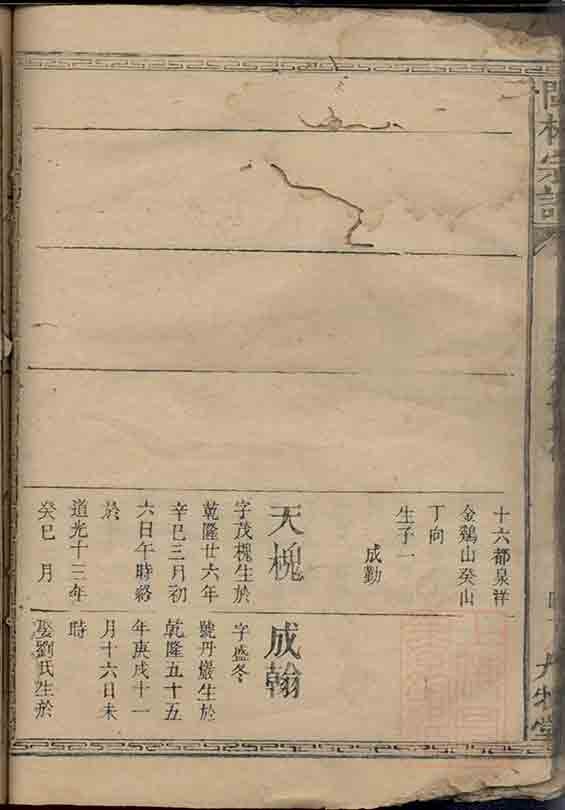 十六都泉洋
金鷄山癸山
丁向
生子一
成勤
天槐
字茂槐生於
乾隆廿六年
辛巳三月初
六日午時終
於
道光十三年
癸巳 月
成翰
字盛冬
號丹巖生於
乾隆五十五
年庚戌十一
月十六日未
時
娶劉氏生於